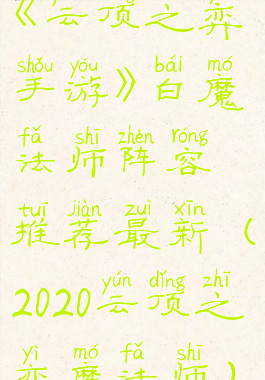 《云顶之弈
shǒu yóu bái mó
手游》白魔
fǎ shī zhèn róng
法师阵容
tuī jiàn zuì xīn
推荐最新（
yún dǐng zhī
2020云顶之
yì mó fǎ shī
弈魔法师）